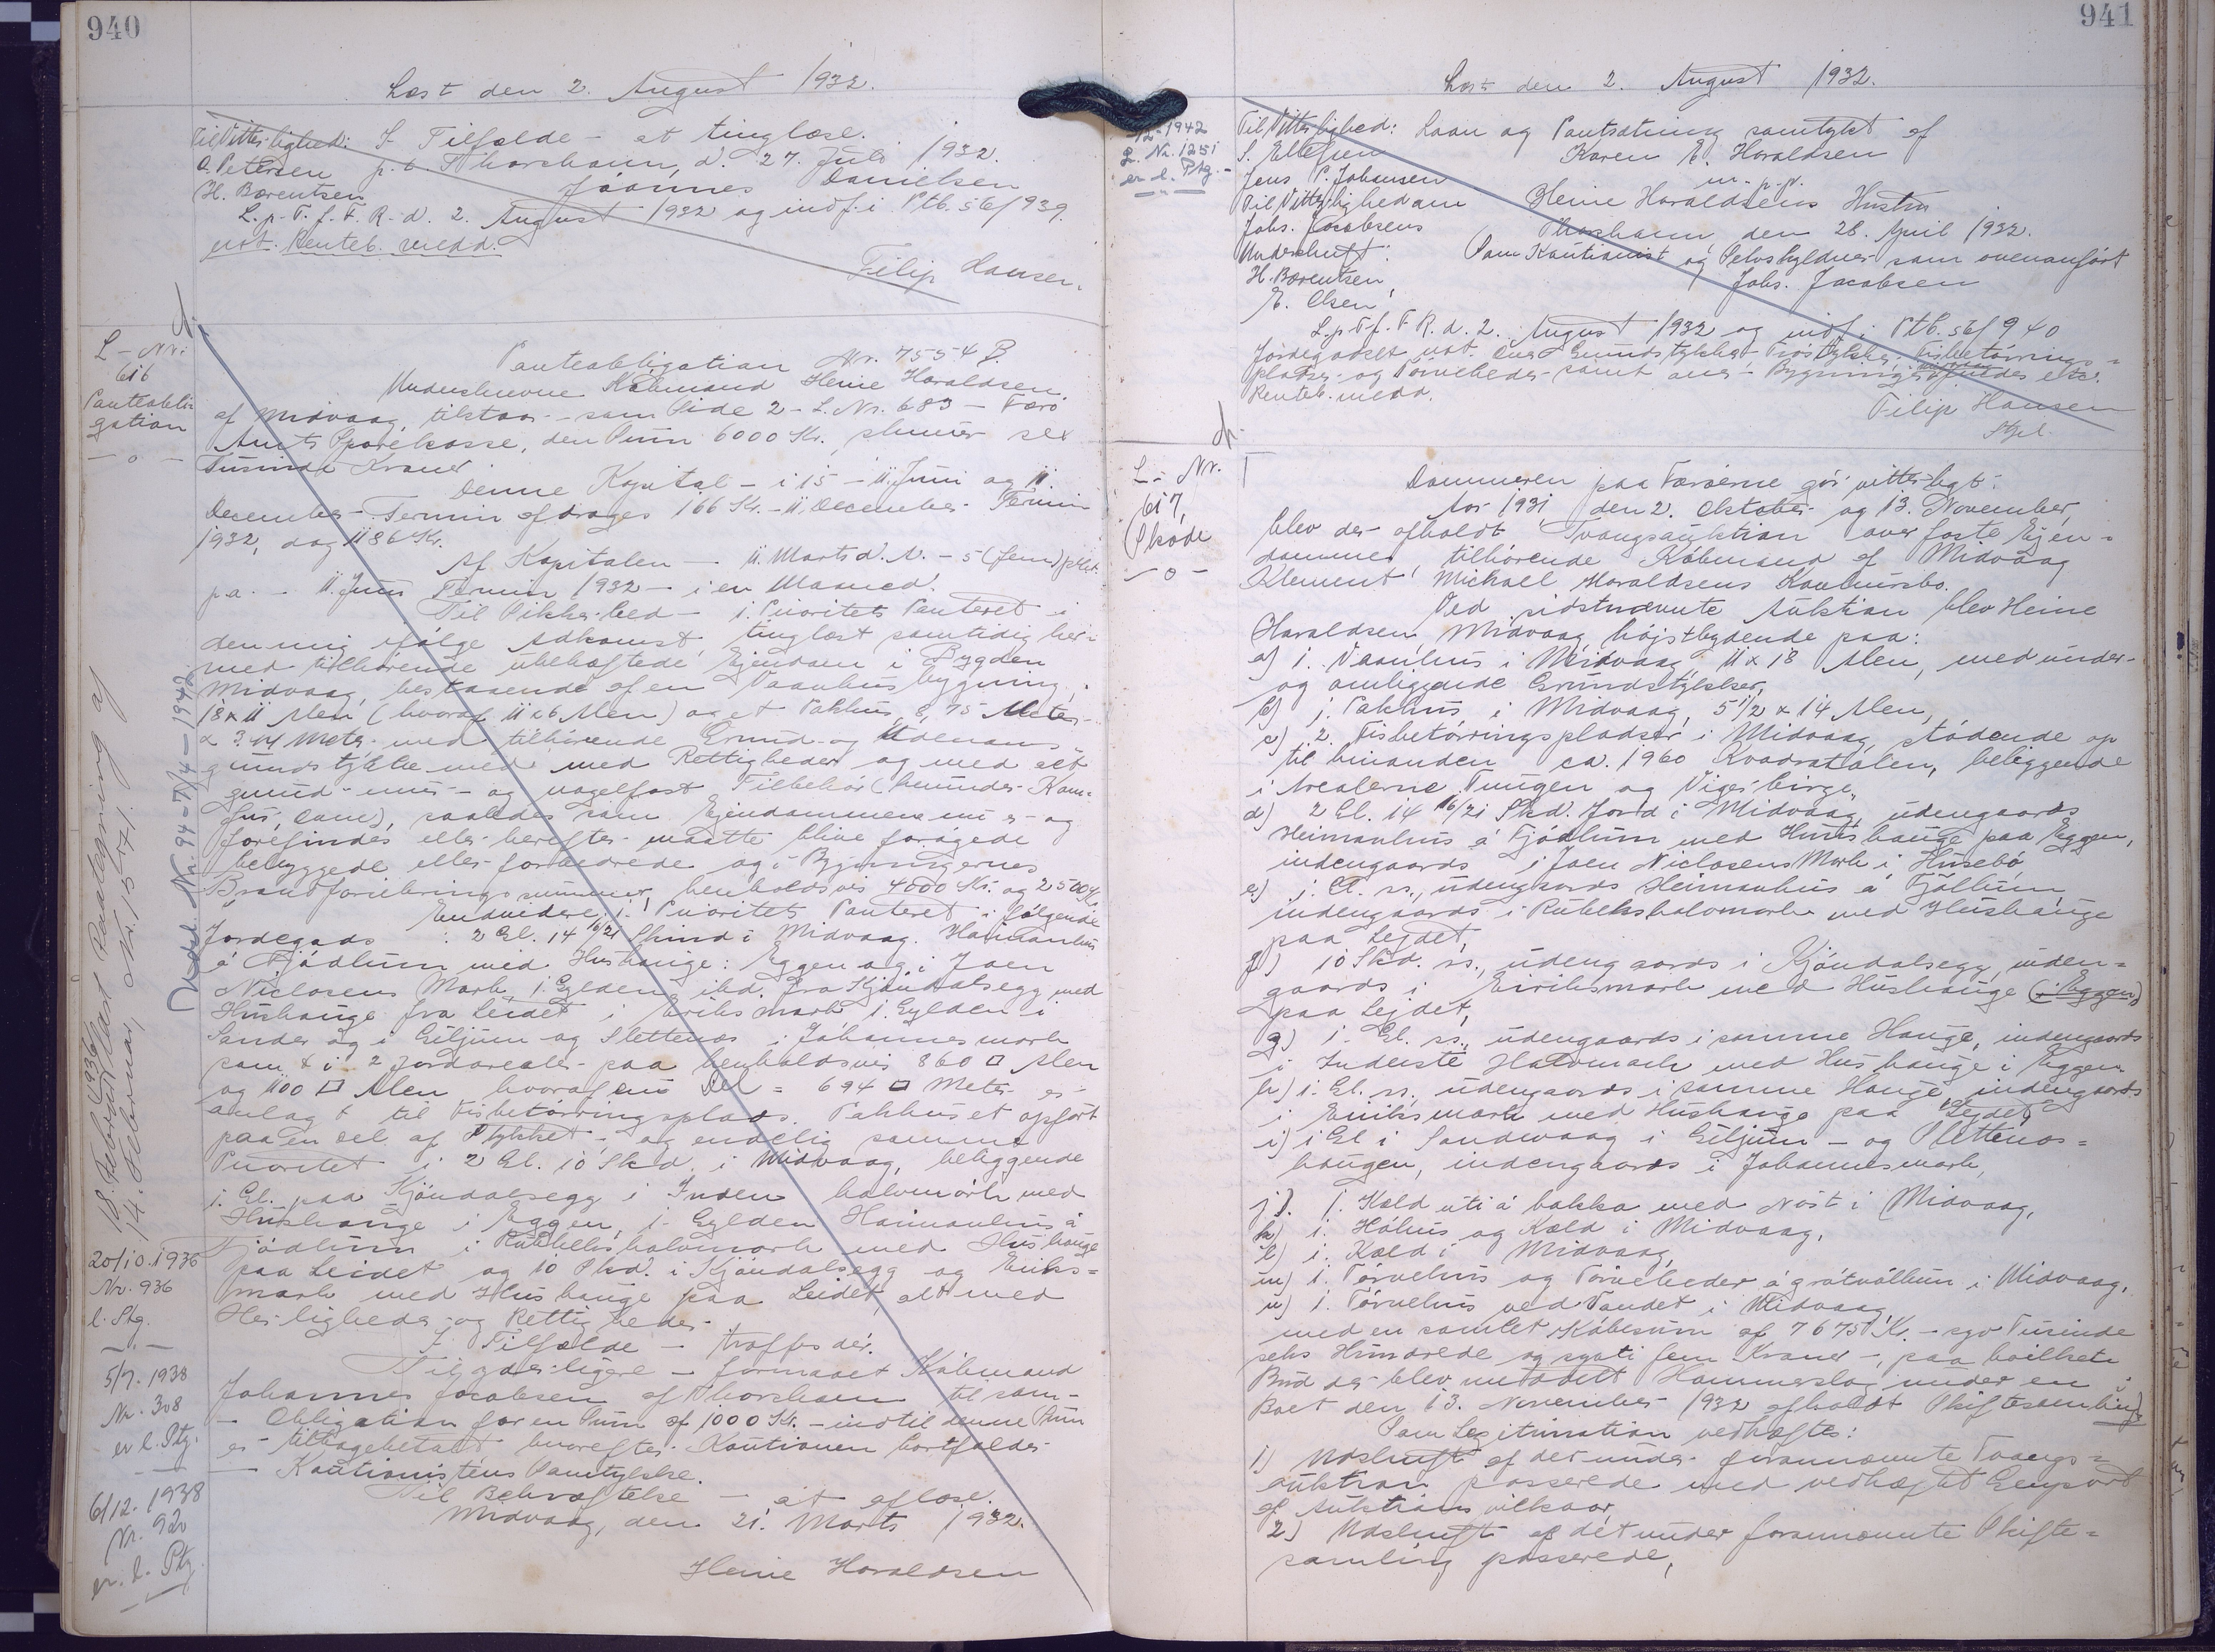 940
Læst den 2. August 1932.
Til Vitterlighed: I Tilfælde - at tinglæse.
O. Petersen p.t. Thorshavn, d. 27. Juli 1932.
H. Bærentsen Jóannes Danielsen
L.p.T.f.F.R.d. 2. August 1932 og indf. i Ptb. 56/939
not. Renteb. medd.
Filip Hansen.
L-Nr:
616
Panteobli-
gation
Panteobligation Nr. 7554 B.
Underskrevne Købmand Heine Haraldsen
af Midvaag, tilstaar - som Side 2 - L. Nr. 683 - Færø
Amts Sparekasse, den Sum 6000 Kr., skriver sex
Tusinde Kroner
Denne Kapital - i 15 - 11. Juni og 11.
December Termin afdrages 166 Kr. - 11. December Termin
1932, dog 1186 Kr.
Af Kapitalen - 11. Marts d. A. - 5 (fem) pCt.
p.a. - 11. Juni Termin 1932 - i en Maaned.
Til Sikkerhed - 1. Prioritets Panteret i
den mig ifølge Adkomst, tinglæst samtidig her-
med tilhørende ubehæftede Ejendom i Bygden
Midvaag, bestaaende af en Vaanhusbygning,
18 x 11 Alen (hvoraf 11 x 6 Alen) og et Pakhus 8,75 Meter
x 3.44 Metr. med tilhørende Grund- og Udenoms-
grundstykke med med Rettigheder og med alt
grund- mur- og nagelfast Tilbehør (herunder Kom-
fur, Ovne), saaledes som Ejendommene nu er og
forefindes eller herefter maatte blive forøgede
bebyggede eller forbedrede og i Bygningernes
Brandforsikringssummer, henholdsvis 4000 Kr. og 2500 Kr.
Endvidere 1. Prioritets Panteret i følgende
Jordegods : 2 Gl. 14 16/21 Skind i Midvaag. Haimanhus
á Fjödlum med Hushauge: Eggen og i Joen
Niclasens Mark, 1. Gylden ibd. fra Kjöndalsegg med
Hushauge fra Leidet i Eriksmark 1. Gylden i
Sander og i Giljum og Slettenæs i Johannesmark
samt i 2 Jordarealer paa henholdsvis 860 □ Alen
og 1100 □ Alen hvoraf en Del = 694 □ Meter er
anlagt til Fisketørringsplads. Pakhuset opført
paa en Del af Stykket - og endelig samme
Prioritet i 2 Gl. 10 Skd. i Midvaag, beliggende
1. Gl. paa Kjöndalsegg i Inden halvmark med
Hushauge i Eggen, 1. Gylden Haimanhus á
Fjödlum i Rubbeks halvmark med Hushauge
paa Leidet og 10 Skd. i Kjöndalsegg og Eriks=
mark med Hushauge paa Leidet, alt med
Herligheder og Rettigheder.
I Tilfælde - træffes der.
Til yderligere - formaaet Købmand
Johannes Jacobsen af Thorshavn til som -
- Obligation for en Sum af 1000 Kr. - indtil denne Sum
er tilbagebetalt hvorefter Kautionen bortfalder
- Kautionistens Samtykke.
Til Bekræftelse - at aflæse.
Midvaag, den 21. Marts 1932.
Heine Haraldsen
Udsl. Nr. 94 - 7/4 - 1942
14. Februar, Nr. 15
20/10. 1936
Nr. 936
l. Ptg.
5/7. 1938
Nr. 308
er l. Ptg.
6/12. 1938
Nr. 920
er. l. Ptg.
941
Læst den 2. August 1932.
1942
L. Nr. 1251
er l. Ptg.
Til Vitterlighed: Laan og Pantsætning samtykt af
S. Ellefsen Karen E. Haraldsen
Jens P. Johansen m.p.p.
Til Vitterlighed om Heine Haraldsens Hustru
Johs. Jacobsens Thorshavn, den 28. April 1932.
Underskrift: Som Kautionist og Selvskyldner som ovenanført
H. Bærentsen Johs. Jacobsen
E. Olsen
L.p.T.f.F.R.d. 2. August 1932 og indf. i Ptb. 56/940
Jordegodset not. over Grundstykker Træstykker Fisketørrings=
pladser og Tørveheder samt over Bygninger findes etc.
Renteb. medd.
Filip Hansen
Stpl.
L. Nr.
617
Skøde
Dommeren paa Færøerne gör vitterligt:
Aar 1931 den 2. Oktober og 13. November,
blev der afholdt Tvangsauktion over faste Ejen-
domme, tilhørende Købmand af Midvaag
Klement Michael Haraldsens Konkursbo.
Ved sidstnævnte Auktion blev Heine
Haraldsen, Midvaag højstbydende paa:
a) 1. Vaanhus i Midvaag, 11 x 18 Alen, med under-
og omliggende Grundstykker,
b) 1. Pakhus i Midvaag, 5 1/2 x 14 Alen,
c) 2. Fisketørringspladser i Midvaag, stødende op
til hinanden ca. 1960 Kvadratalen, beliggende
i Arealerne Tungen og Vigerbirge,
d) 2 Gl. 14 16/21 Skd. Jord i Midvaag, udengaards
Heimanhus á Fjödlum med Hushauge paa Eggen,
indengaards i Joen Niclasens Mark i Husebö,
e) 1. Gl. ss., udengaards Heimanhus á Fjöllum,
indengaards i Rubeks halvmark med Hushauge
paa Lejdet,
f) 10 Skd. ss., udengaards i Kjöndalsegg, inden=
gaards i Eiriksmark med Hushauge (i Eggen)
paa Lejdet,
g) 1. Gl. ss., udengaards i samme Hauge, indengaards
i Inderste Halvmark med Hushauge i Eggen
h) 1. Gl. ss., udengaards i samme Hauge, indengaards
i Eriksmark med Hushauge paa Lejdet,
i) 1 Gl i Sandevaag i Giljum - og Slettenæs=
haugen, indengaards i Johannesmark,
j) 1. Kæld uti á bakka med Nøst i Midvaag,
k) 1. Hóhus og Kæld i Midvaag,
l) 1. Kæld i Midvaag,
m) 1. Tørvehus og Tørveheder á grótvöllum i Midvaag,
n) 1. Tørvehus ved Vandet i Midvaag,
med en samlet Købesum af 7675 Kr. - syv Tusinde
seks Hundrede og syvti fem Kroner -, paa hvilket
Bud der blev meddelt Hammerslag under en i
Boet den 13. November 1932 afholdt Skiftesamling
Som Legitimation vedhæftes:
1) Udskrift af det under fornævnte Tvangs=
auktion passerede med vedhæftet Genpart
af Auktionsvilkaar,
2) Udskrift af det under forannævnte Skifte=
samling passerede,